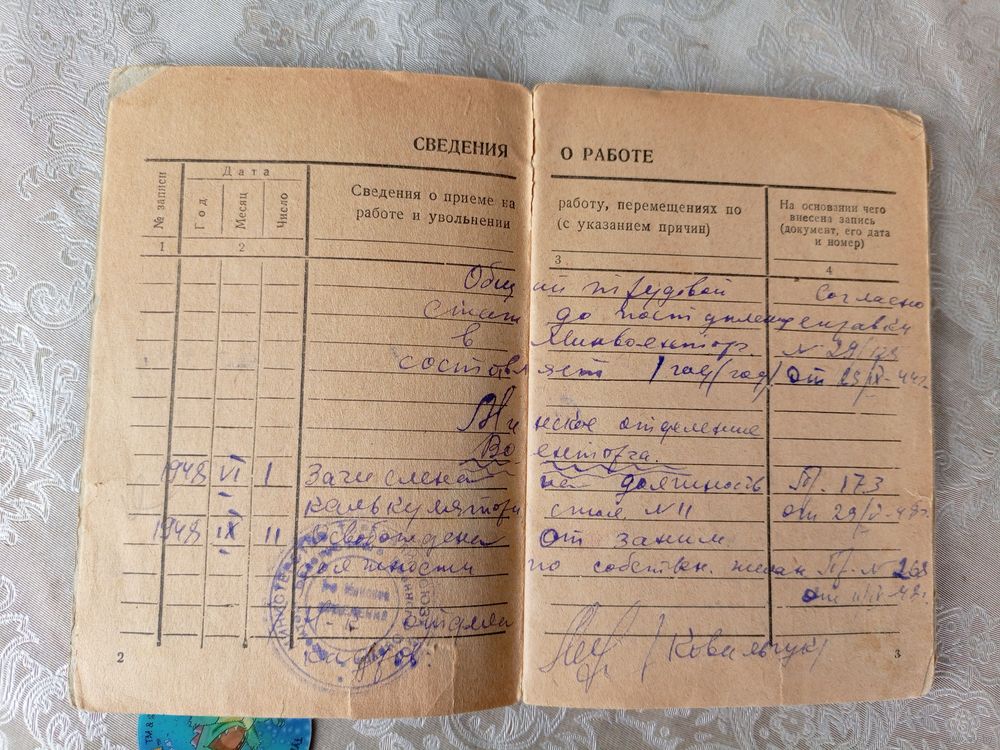 СВЕДЕНИЯ О РАБОТЕ
№ записи
Дата
Год
Месяц
Число
Сведения о приеме на работу, перемещениях по
работе и увольнении (с указанием причин)
На основании чего
внесена запись
(документ, его дата
и номер)
1 2 3 4
Общий трудовой Согласно
стаж до поступления справки
в Минвоенторг. N 29/178
составляет 1 год (год) от
Минское отделение
Военторга.
1948 VI 1 Зачислена на должность П. 173
калькулятора стол N 11 от 29/V-48г.
1948 IX 11 Освобождена от заним
должности по собствен. желан Пр. N 268
от 11/IX-48г.
Н-к отдела
кадров. /Ковальчук/
2
3
TM &